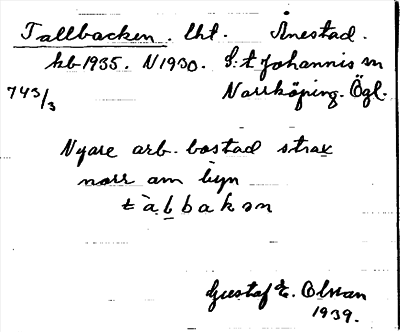 Tallbacken. lht. Ånestad.
kb 1935. N1930. S:t Johannis sn
743/3 Norrköping. Ögl.
Nyare arb. bostad strax
norr om byn
tàḷbakən
Gustaf E. Olsson
1939.